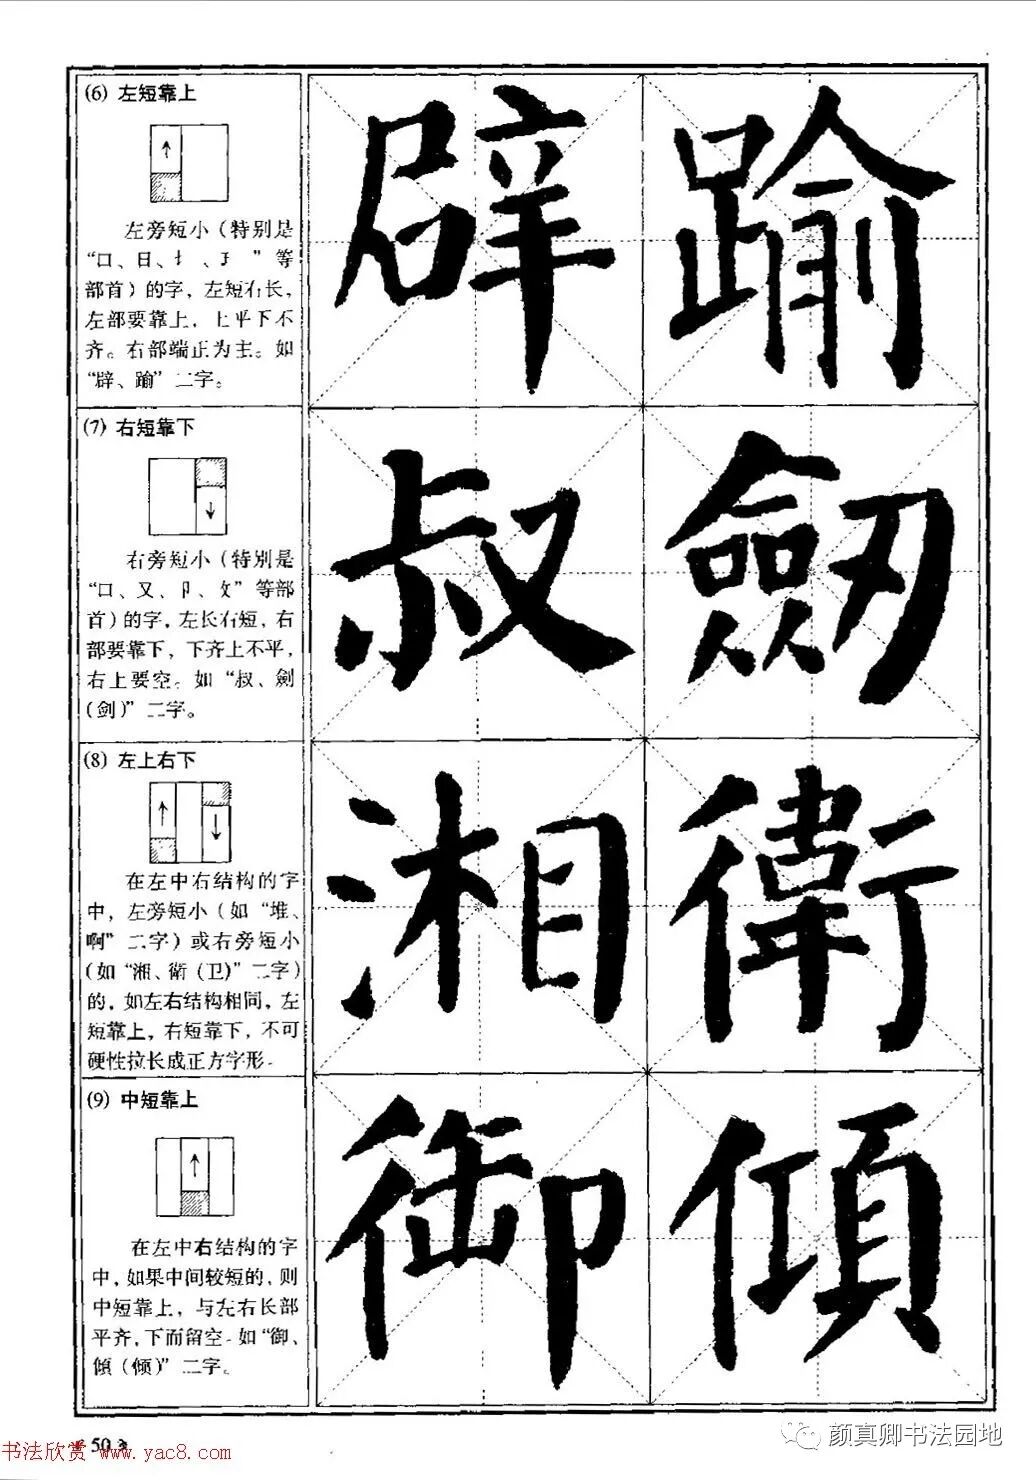 (6) 左短靠上
左旁短小（特别是
“口、日、土、王”等
部首）的字，左短右长，
左部要靠上，上平下不
齐。右部端正为主。如
“辟、踰”二字。
辟 踰
(7) 右短靠下
右旁短小（特别是
“口、又、卩、攵”等部
首）的字，左长右短，右
部要靠下，下齐上不平，
右上要空。如“叔、劍
（剑）”二字。
叔 劒
(8) 左上右下
在左中右结构的字
中，左旁短小（如“堆、
啊”二字）或右旁短小
（如“湘、衛（卫）”二字）
的，如左右结构相同，左
短靠上，右短靠下，不可
硬性拉长成正方字形。
湘 衛
(9) 中短靠上
在左中右结构的字
中，如果中间较短的，则
中短靠上，与左右长部
平齐，下面留空。如“御、
傾（倾）”二字。
御 傾
50
书法欣赏 www.yac8.com
颜真卿书法园地